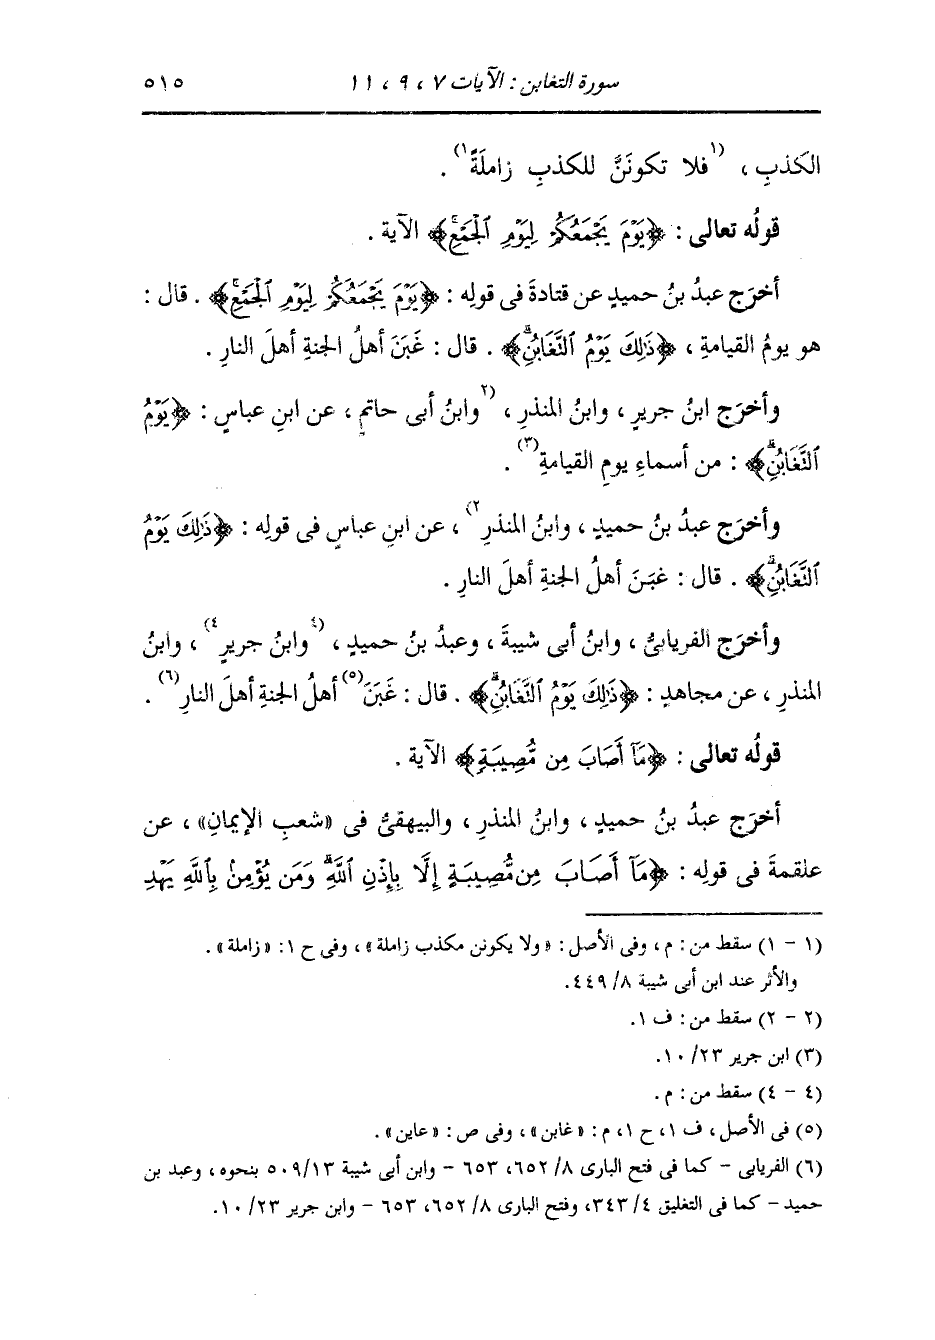 سورة التغابن : الآيات ٧ ، ٩ ، ١١ ٥١٥
الكذبِ ، (١فلا تكونَنَّ للكذبِ زاملَةً١) .
قولُه تعالى : ﴿يَوْمَ يَجْمَعُكُمْ لِيَوْمِ ٱلْجَمْعِ﴾ الآية .
أخرَج عبدُ بنُ حميدٍ عن قتادةَ فى قولِه : ﴿يَوْمَ يَجْمَعُكُمْ لِيَوْمِ ٱلْجَمْعِ﴾ . قال :
هو يومُ القيامةِ ، ﴿ذَٰلِكَ يَوْمُ ٱلتَّغَابُنِ﴾ . قال : غَبَنَ أهلُ الجنةِ أهلَ النارِ .
وأخرَج ابنُ جريرٍ ، وابنُ المنذرِ ، (٢وابنُ أبى حاتمٍ ، عن ابنِ عباسٍ : ﴿يَوْمُ
ٱلتَّغَابُنِ﴾ : من أسماءِ يومِ القيامةِ(٣) .
وأخرَج عبدُ بنُ حميدٍ ، وابنُ المنذرِ٢) ، عن ابنِ عباسٍ فى قولِه : ﴿ذَٰلِكَ يَوْمُ
ٱلتَّغَابُنِ﴾ . قال : غبَنَ أهلُ الجنةِ أهلَ النارِ .
وأخرَج الفريابىُّ ، وابنُ أبى شيبةَ ، وعبدُ بنُ حميدٍ ، (٤وابنُ جريرٍ٤) ، وابنُ
المنذرِ ، عن مجاهدٍ : ﴿ذَٰلِكَ يَوْمُ ٱلتَّغَابُنِ﴾ . قال : غَبَنَ(٥) أهلُ الجنةِ أهلَ النارِ(٦) .
قولُه تعالى : ﴿مَآ أَصَابَ مِن مُّصِيبَةٍ﴾ الآية .
أخرَج عبدُ بنُ حميدٍ ، وابنُ المنذرِ ، والبيهقىُّ فى «شعبِ الإيمانِ» ، عن
علقمةَ فى قولِه : ﴿مَآ أَصَابَ مِن مُّصِيبَةٍ إِلَّا بِإِذْنِ ٱللَّهِ وَمَن يُؤْمِنۢ بِٱللَّهِ يَهْدِ
(١ - ١) سقط من : م ، وفى الأصل : «ولا يكونن مكذب زاملة» ، وفى ح ١: «زاملة» .
والأثر عند ابن أبى شيبة ٨/ ٤٤٩.
(٢ - ٢) سقط من : ف ١.
(٣) ابن جرير ٢٣/ ١٠.
(٤ - ٤) سقط من : م .
(٥) فى الأصل ، ف ١، ح ١، م : «غابن» ، وفى ص : «عاين» .
(٦) الفريابى - كما فى فتح البارى ٨/ ٦٥٢، ٦٥٣ - وابن أبى شيبة ١٣/ ٥٠٩ بنحوه ، وعبد بن
حميد - كما فى التغليق ٤/ ٣٤٣، وفتح البارى ٨/ ٦٥٢، ٦٥٣ - وابن جرير ٢٣/ ١٠.